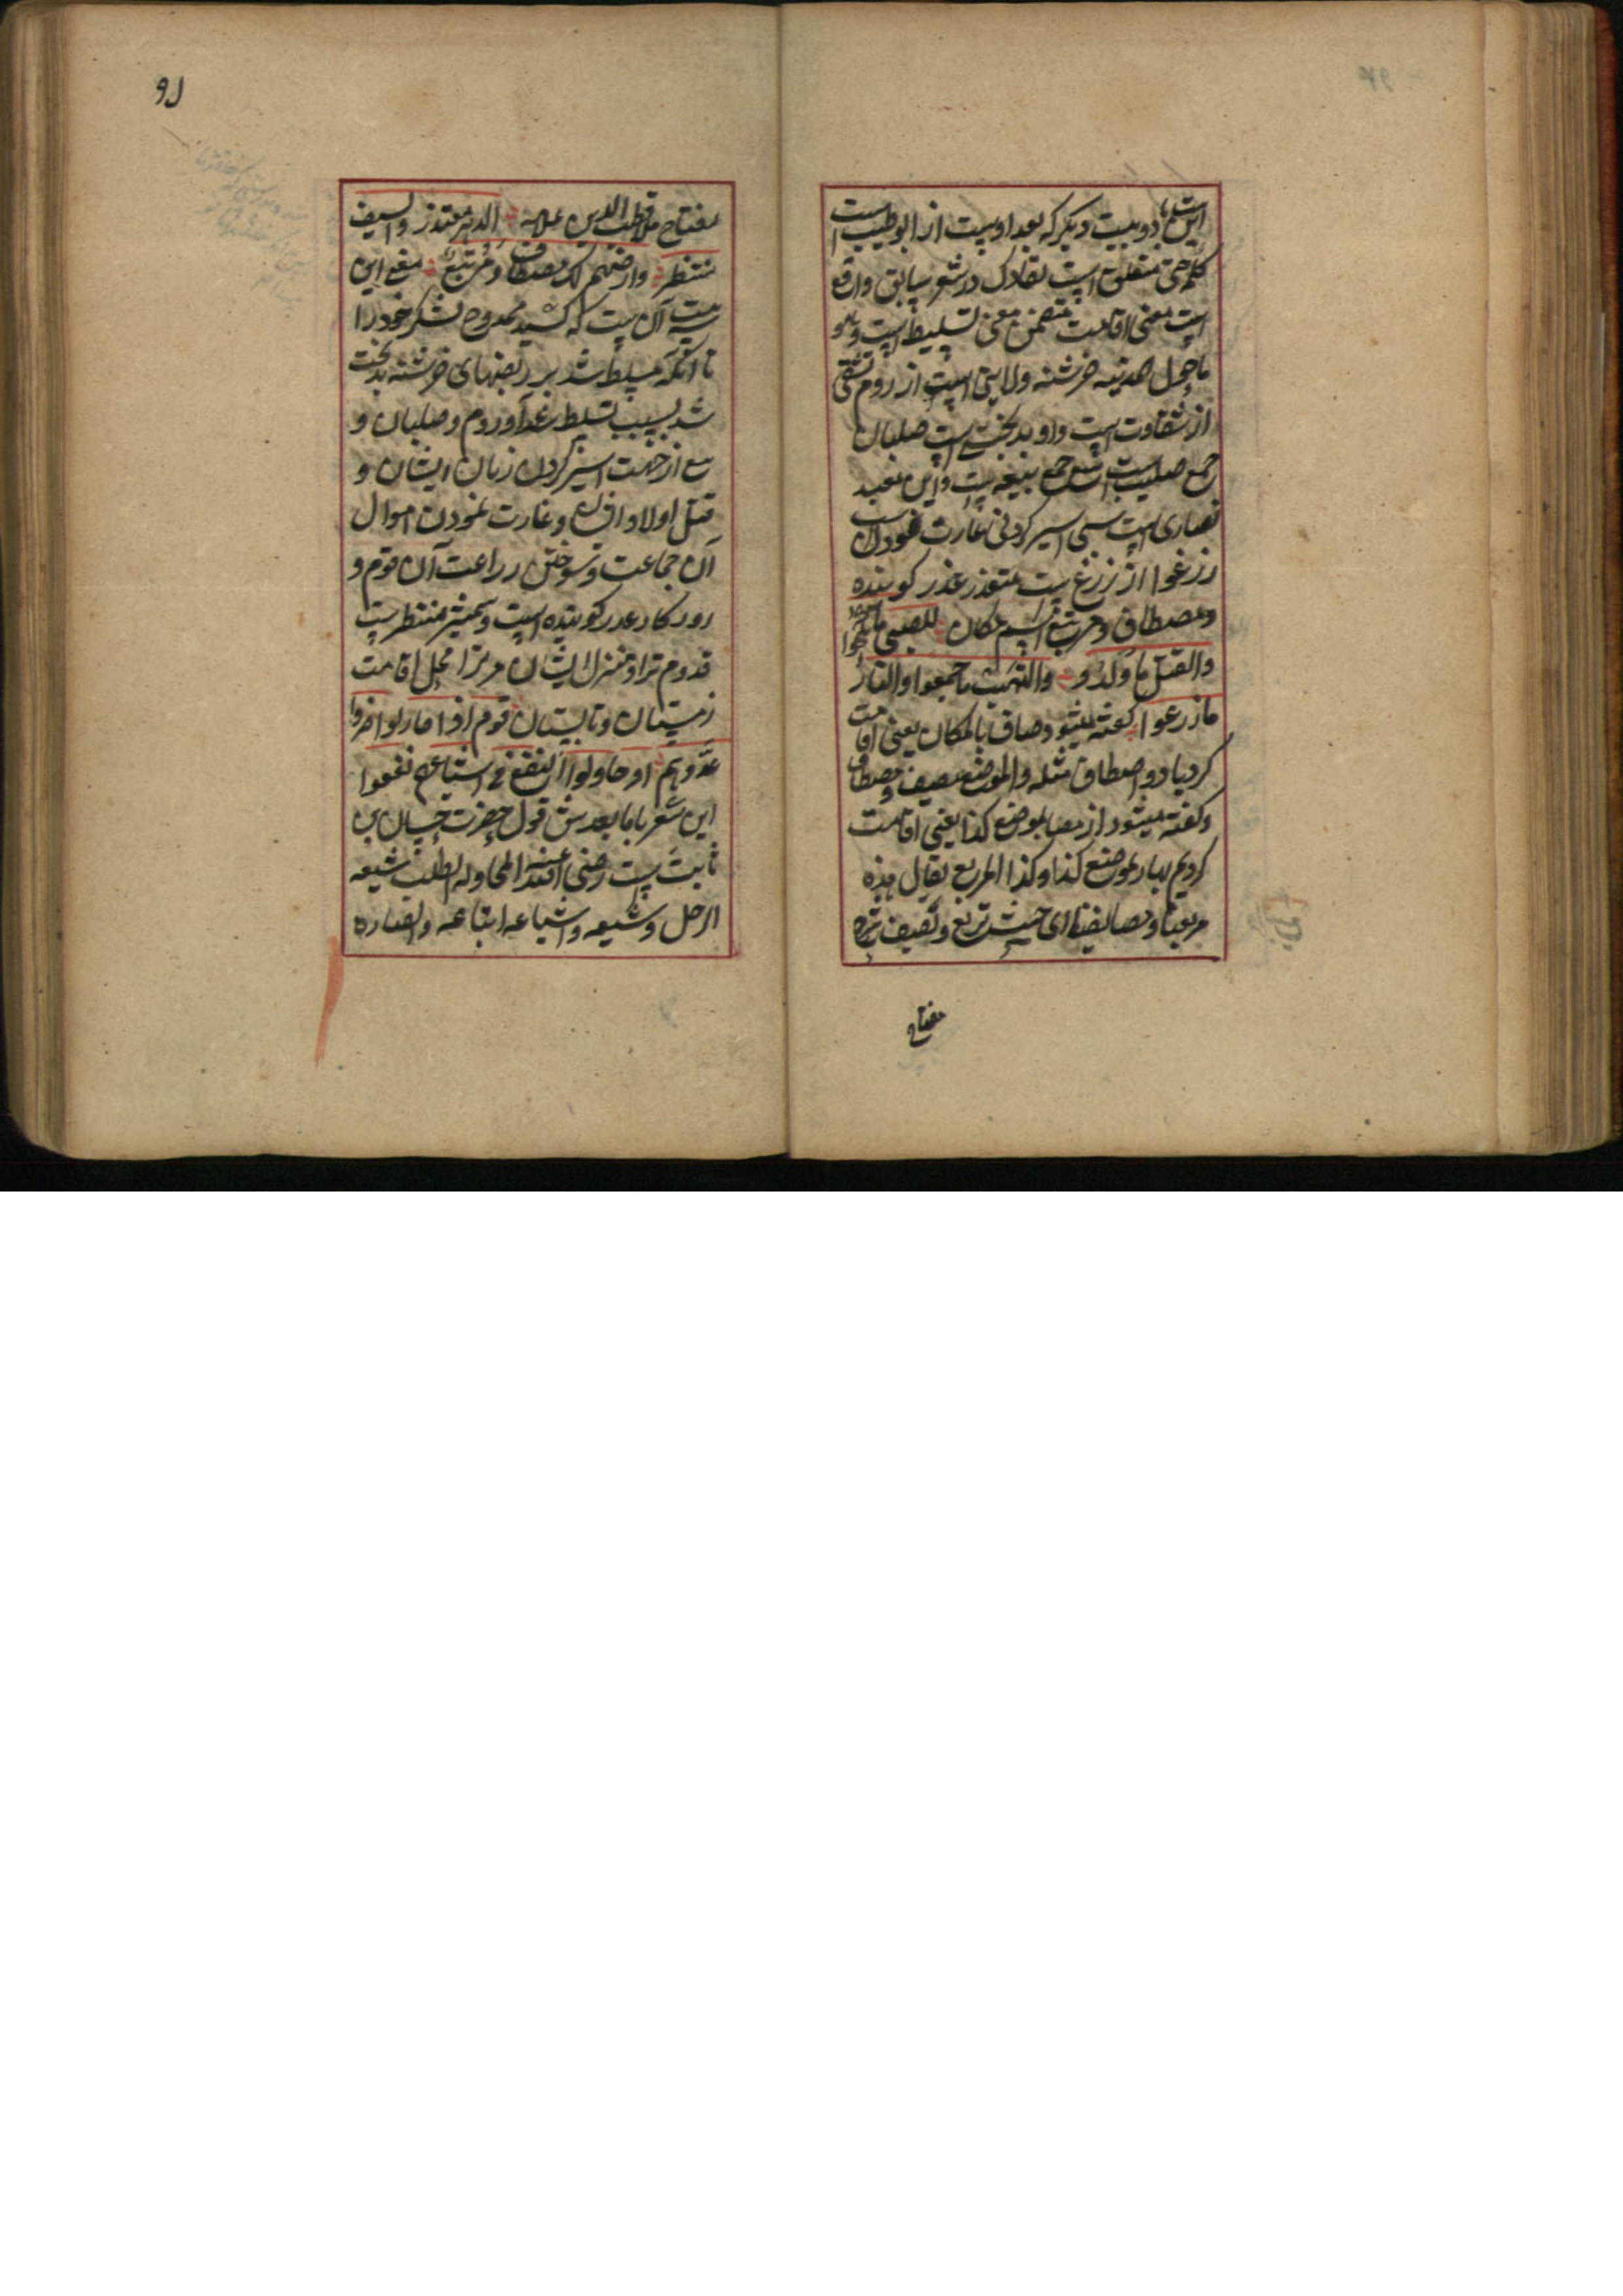 این دو بیت دیکر که بعد اوست از ابو طیب است
کلمه حتی متعلق است بقادک در شعر سابق واقع
است معنی اقامت متضمن معنی تسلیط است و
ماحول مدینه خرشنه ولایتی است از روم تشقی
از شقاوت است واو بدبختی است صلبان
جمع صلیب است بیع جمع بیعه است و این معبد
نصاری است سبی اسیر کردن غارت نمودن
زرعوا از زرع ست معتذر عذر کوینده
ومصطاف ومرتبع اسم مکان للسبی ما نکحوا
والقتل ما ولدوا والنهب ما جمعوا والنار
ما زرعوا کفته میشود صاف بالمکان یعنی اقامت
کرد یا دو اصطاف مثله والموضع مصیف ومصطاف
وکفته میشود از بموضع کذا یعنی اقامت
کردیم بهار بموضع کذا وکذا المربع یقال هذه
مرابعنا ومصایفنا ای حیث نرتبع ونصیف
مفتاح
۹۱
مفتاح ملا قطب الدین علامه الدهر معتذر والسیف
منتظر وارضهم لک مصطاف ومرتبع معنی این
بیت آن ست که کشید ممدوح لشکر خود را
تا آنکه مسلط شد بر ربضهای خرشنه بدبخت
شد بسبب تسلط روم وصلبان و
بیع از جهت اسیر کردن زنان ایشان و
قتل اولاد وغارت نمودن اموال
آن جماعت وسوختن زراعت آن قوم و
روزکار عذر کوینده است وشمشیر منتظر ست
قدوم ترا ومنزل ایشان مر ترا محل اقامت
زمستان وتابستان قوم اذا حاربوا ضروا
عدوهم او حاولوا النفع فی اشیاعهم نفعوا
این شعر با مابعدش قول حضرت حسان بن
ثابت ست رضی الله عنه المحاوله الطلب شیعه
الرجل وشیعه واشیاعه اتباعه وانصاره